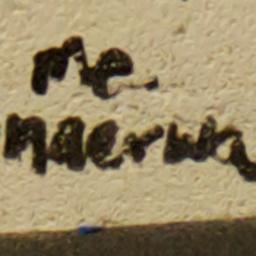 Me
naerwa